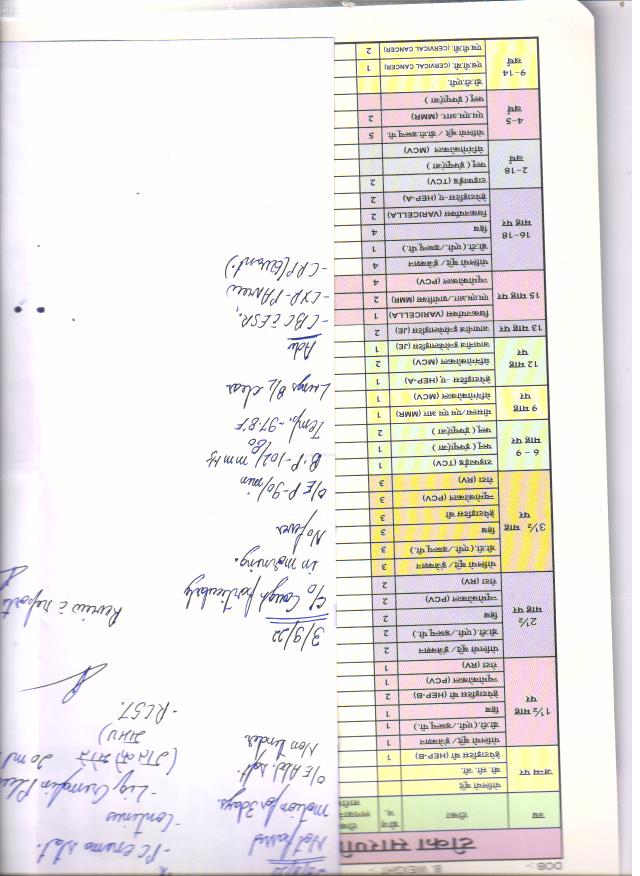 DOB:- B. WEIGHT :-
टीका सारणी
उम्र टीका डोज नं.
जन्म पर पोलियो बूंदे
बी. सी. जी.
हेपेटाइटिस बी (HEP-B) 1
1½ माह पर पोलियो बूंदे/ इन्जेक्शन 1
डी.टी. (एपी./डब्ल्यू पी.) 1
हिब 1
हेपेटाइटिस बी (HEP-B) 2
न्यूमोकोकल (PCV) 1
रोटा (RV) 1
2½ माह पर पोलियो बूंदे/ इन्जेक्शन 2
डी.टी. (एपी./डब्ल्यू पी.) 2
हिब 2
न्यूमोकोकल (PCV) 2
रोटा (RV) 2
3½ माह पर पोलियो बूंदे/ इन्जेक्शन 3
डी.टी. (एपी./डब्ल्यू पी.) 3
हिब 3
हेपेटाइटिस बी 3
न्यूमोकोकल (PCV) 3
रोटा (RV) 3
6 - 9 माह पर टाइफाईड (TCV) 1
फ्लू ( इंफ्लूएंजा ) 1
फ्लू ( इंफ्लूएंजा ) 2
9 माह पर मीसल्स/एम एम आर (MMR) 1
मेनिंगोकोकल (MCV) 1
12 माह पर हेपेटाइटिस -ए (HEP-A) 1
मेनिंगोकोकल (MCV) 2
जापानीज इन्सेफेलाइटिस (JE) 1
13 माह पर जापानीज इन्सेफेलाइटिस (JE) 2
15 माह पर चिकनपॉक्स (VARICELLA) 1
एम.एम.आर. (MMR) 2
न्यूमोकोकल (PCV) 4
16-18 माह पर पोलियो बूंदे/ इन्जेक्शन 4
डी.टी. (एपी./डब्ल्यू पी.) 1
हिब 4
चिकनपॉक्स (VARICELLA) 2
हेपेटाइटिस-ए (HEP-A) 2
2-18 वर्ष टाइफाईड (TCV) 2
फ्लू ( इंफ्लूएंजा )
मेनिंगोकोकल (MCV)
4-5 वर्ष पोलियो बूंदे / डी.टी. डब्ल्यू पी. 5
एम.एम.आर. (MMR) 2
फ्लू ( इंफ्लूएंजा )
9-14 वर्ष डी.टी.एपी.
एच.पी.वी. (CERVICAL CANCER) 1
एच.पी.वी. (CERVICAL CANCER) 2
Not passed
motion for 3 days.
O/E Abd. soft.
Non tender
- PC enema stat.
- Continue
- Liq. Cremaffin Plus
20 ml
- RCST.
3/9/22
C/o Cough particularly
in morning.
No fever
O/E P-90/min
B.P - 102/80 mmHg
Temp. - 97.8°F
Lungs B/L clear
Adv
- CBC c̄ ESR,
- CXR-PA view
- CRP (Quant.)
Review c̄ reports